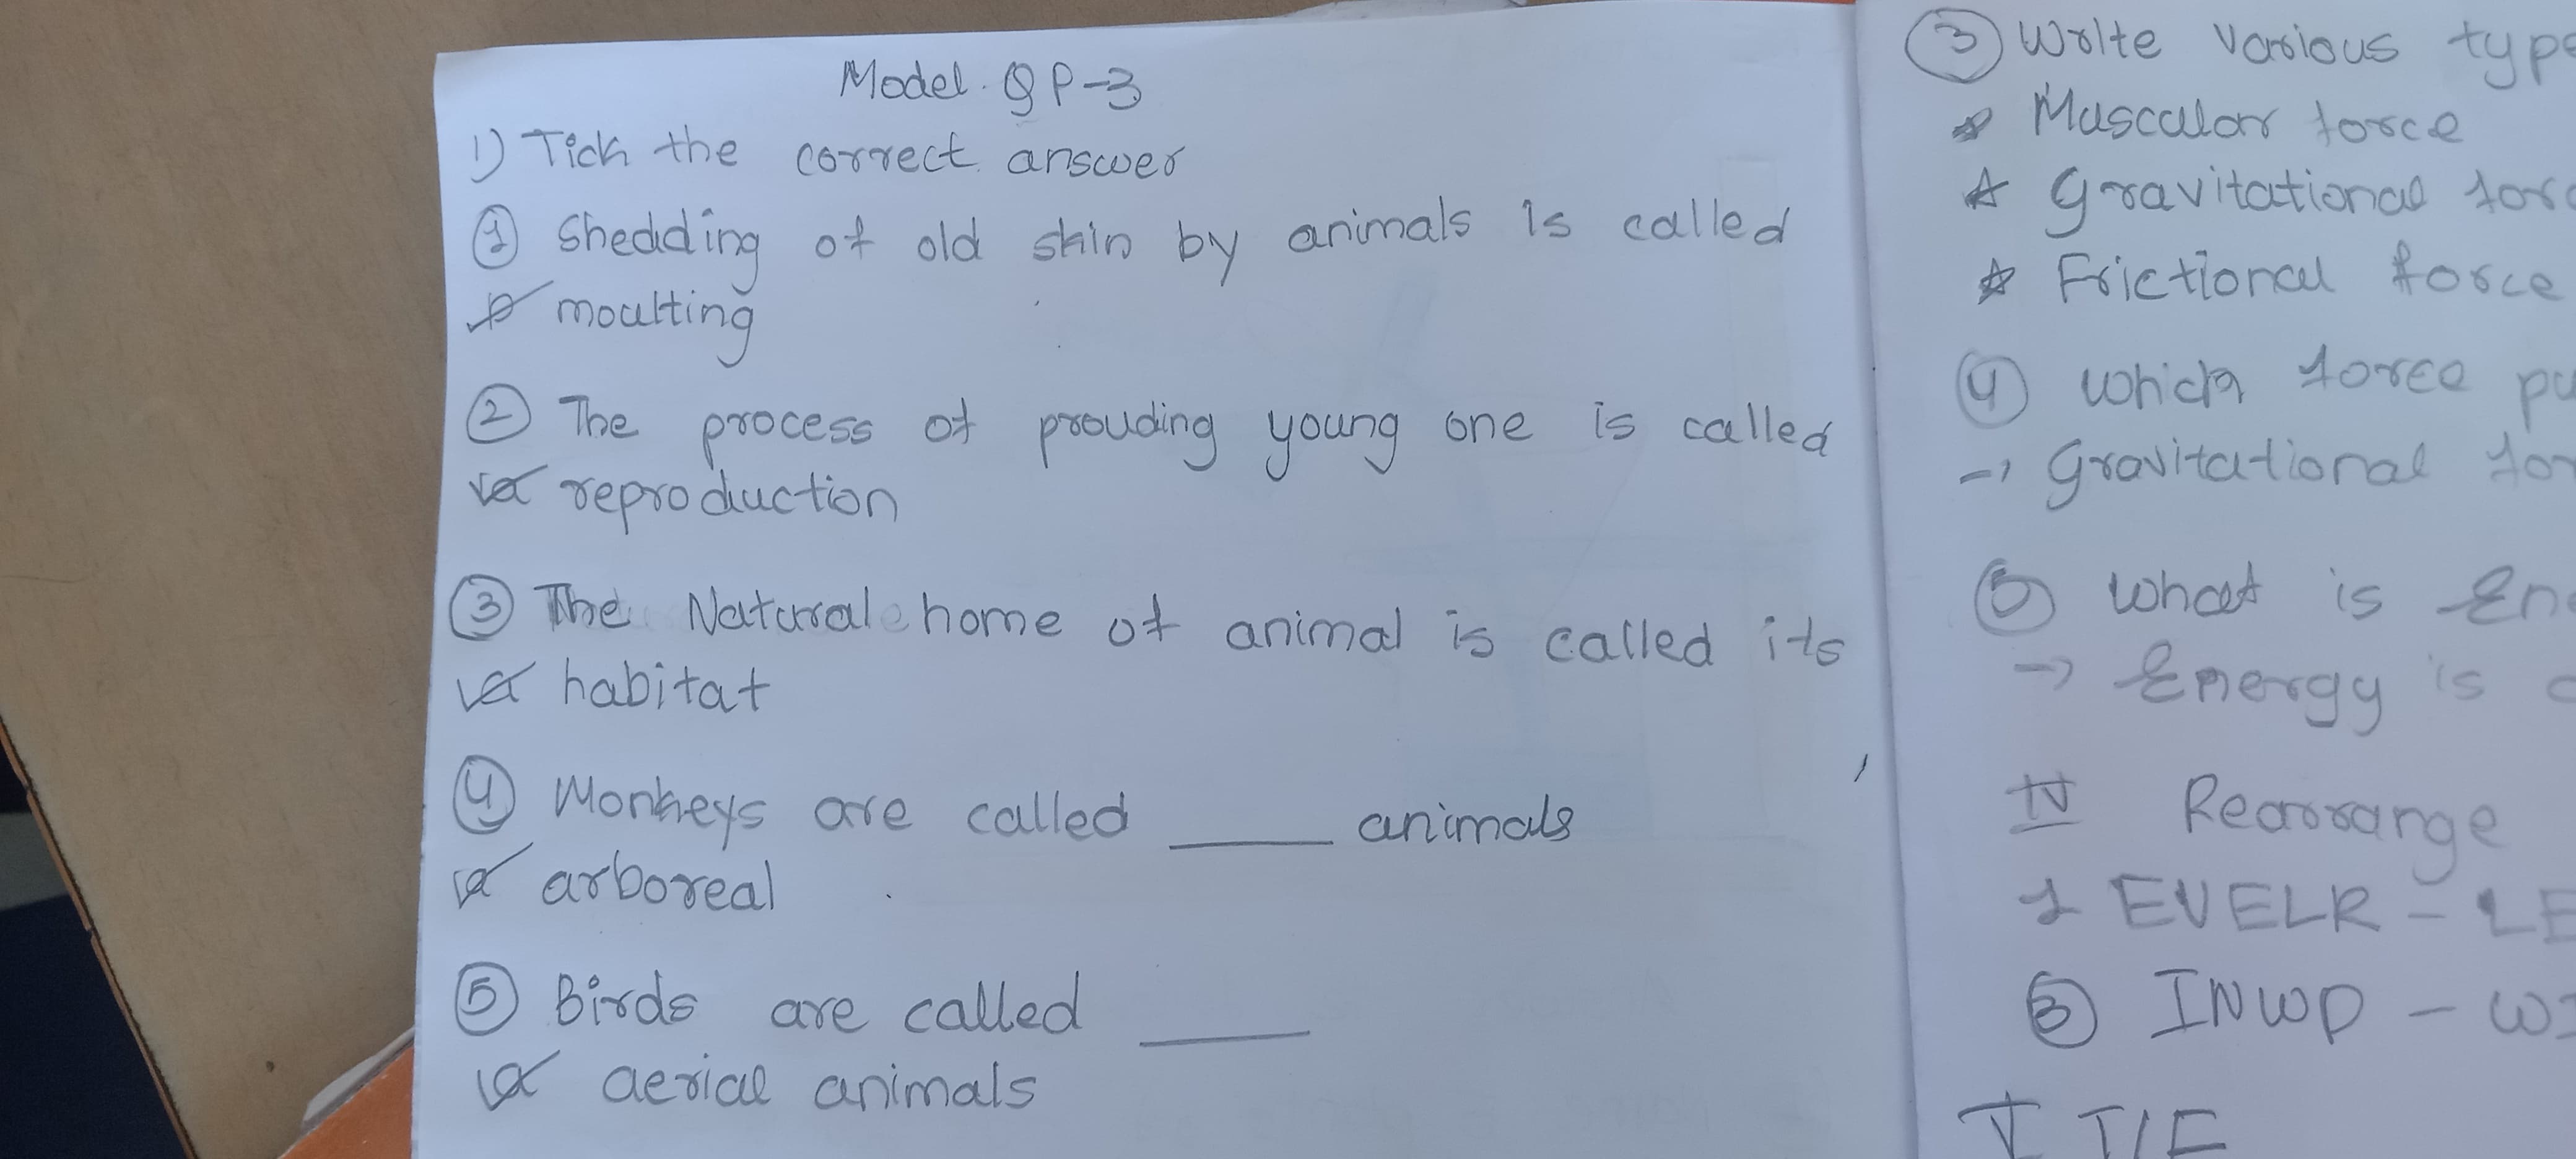 Model. QP-3
1) Tick the correct answer
① Shedding of old skin by animals is called
moulting
② The process of prouding young one is called
reproduction
③ The Natural home of animal is called its
habitat
④ Monkeys are called ____ animals
arboreal
⑤ Birds are called ____
aerial animals
③ Write various
Muscular force
☆ Gravitational
☆ Frictional force
④ which force
→ Gravitational
⑤ What is
→ Energy is
IV Rearrange
1 EVELR -
③ INWD -
V T/F